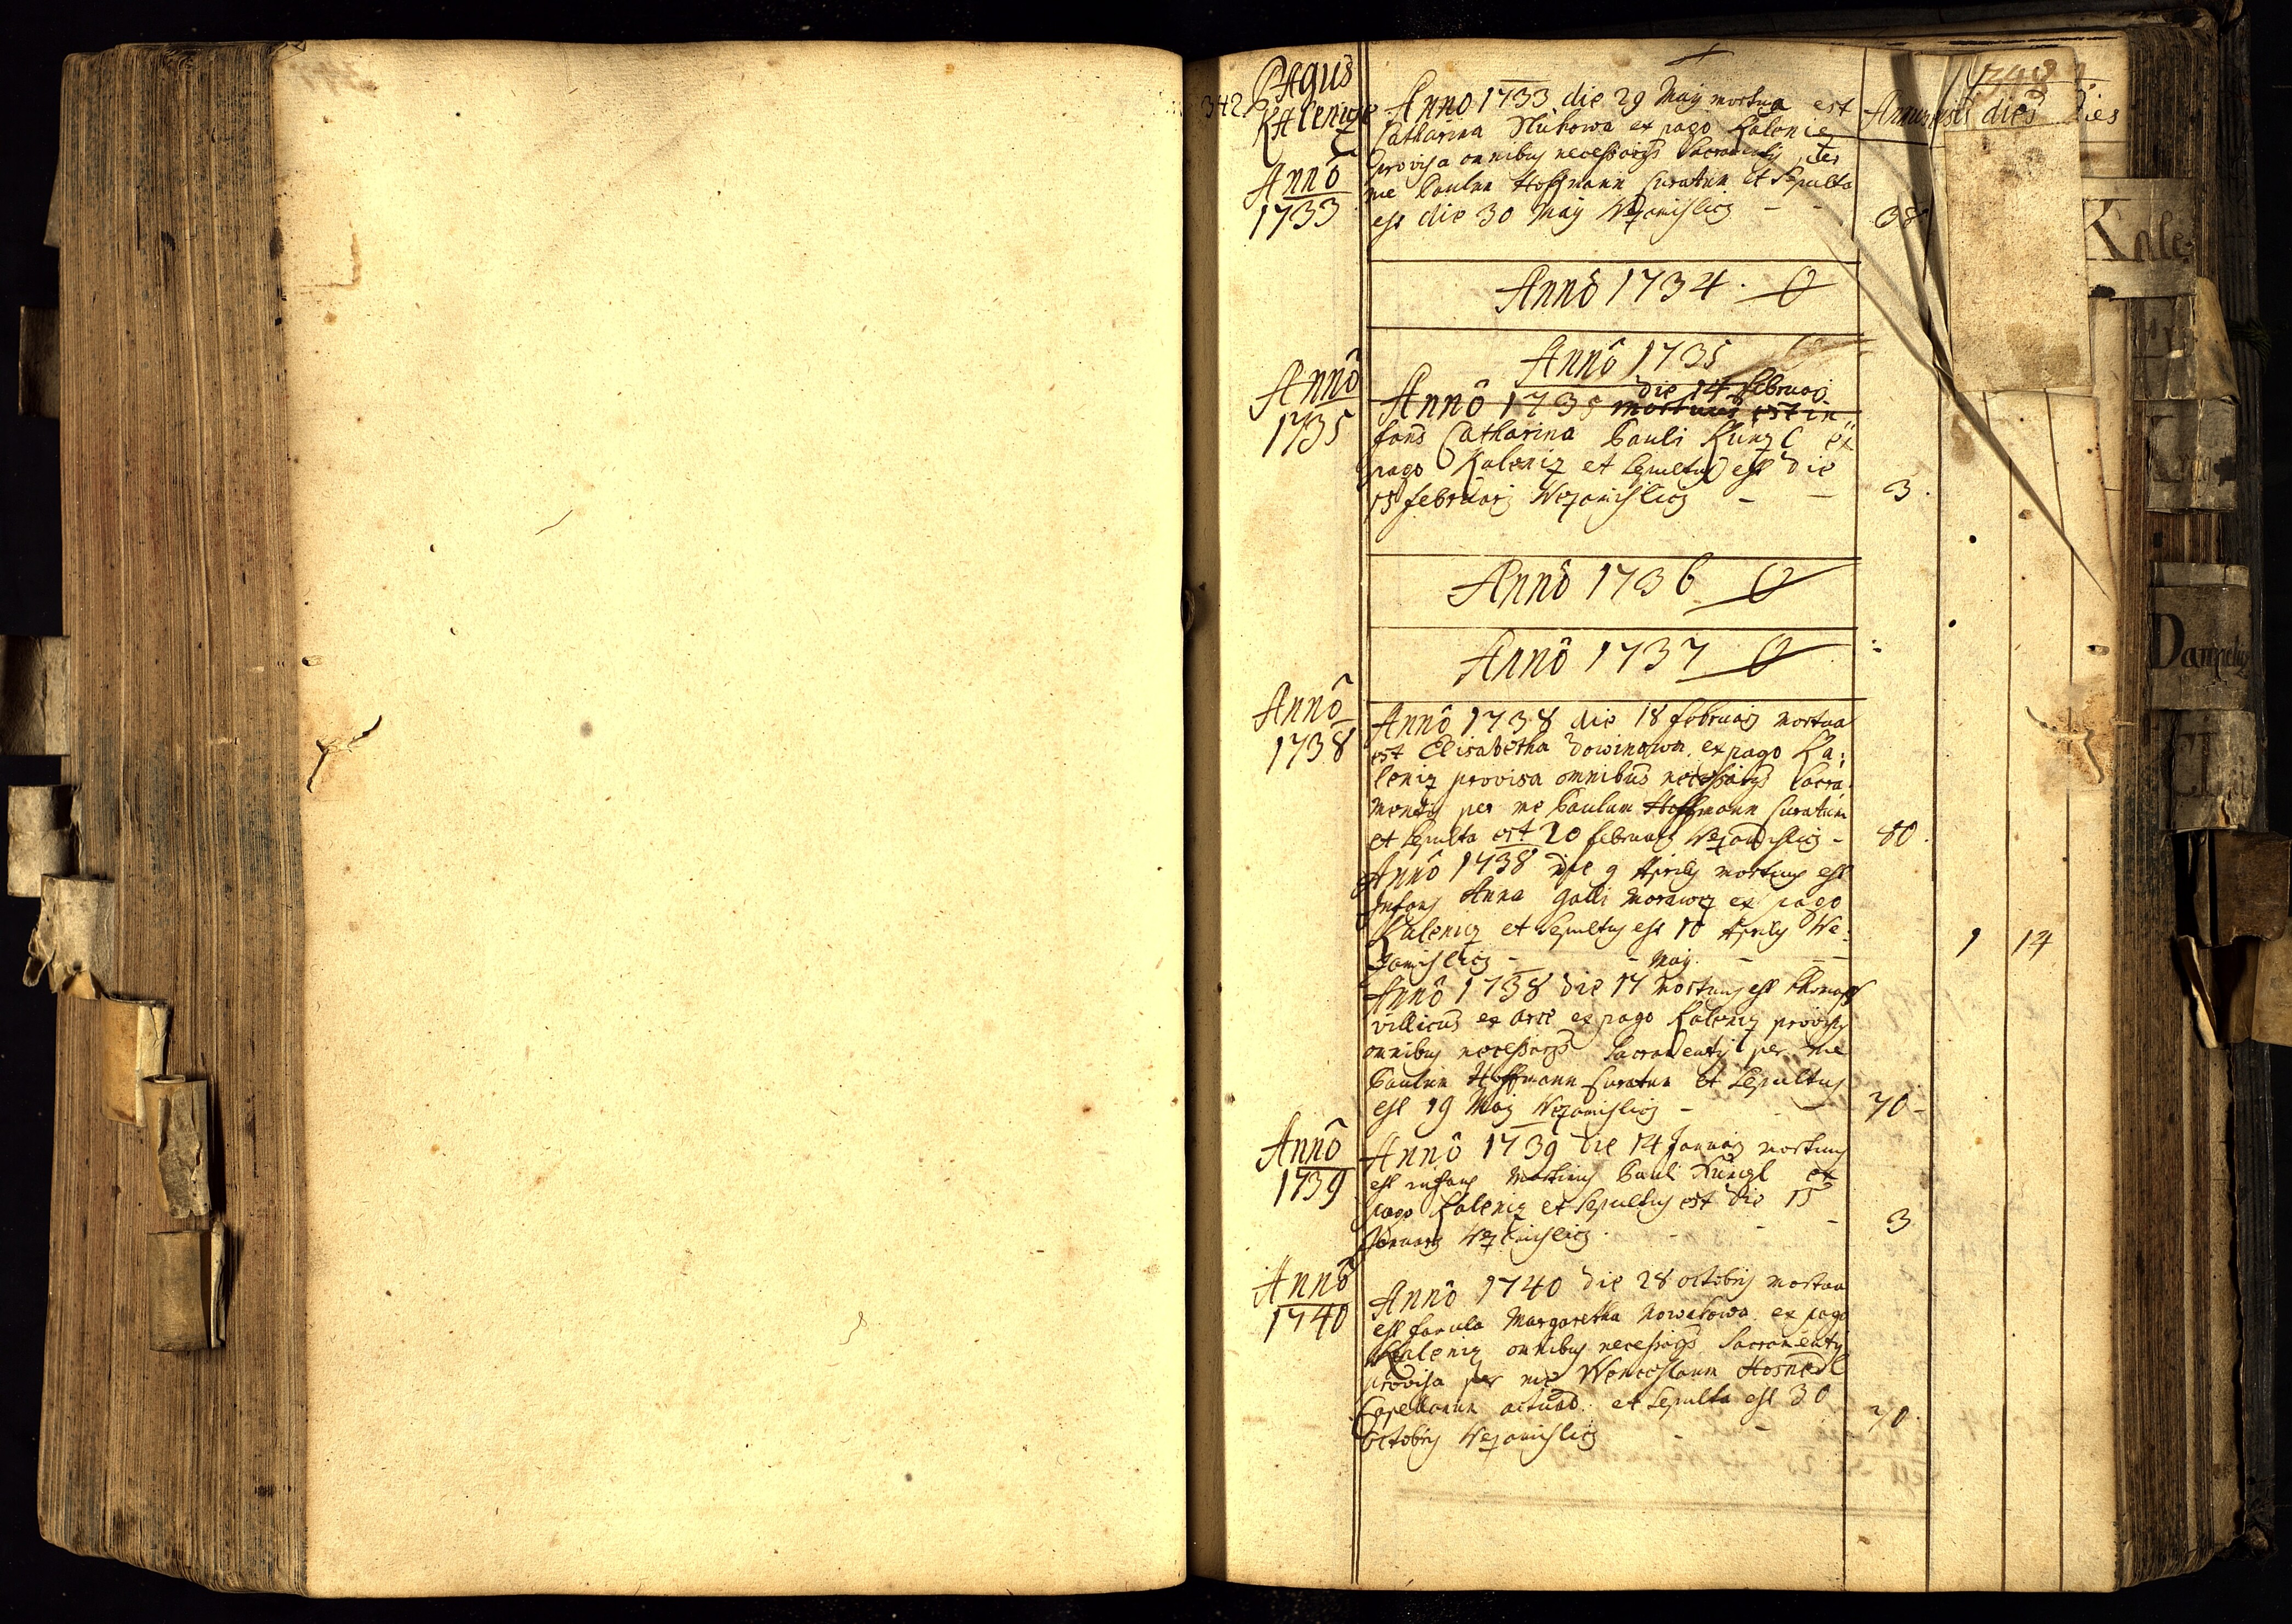 342
Pagus
Kaleniz
Anno
1733
Anno 1733 die 29 Maij mortua est
Catharina Slukowa ex pago Kaleniz
provisa omnibus necessarijs Sacramentis per
me Paulum Hoffmann Curatum et Sepulta
est die 30 Maij Wezamislicij - -
38
Annus
dies
dies
Anno 1734. 0
Anno 1735
Anno
1735
Anno 1735 die 14 Februarij
mortuus est in
fans Catharina Pauli Küngl ex
pago Kaleniz et Sepultus est die
15 februarij Wezamislicij - -
3.
Anno 1736 0
Anno 1737 0
Anno
1738
Anno 1738 die 18 februarij mortua
est Elisabetha Dowinowa ex pago Ka:
leniz provisa omnibus necessarijs Sacra
mentis per me Paulum Hoffmann Curatum
et Sepulta est 20 februarij Wezamislicij -
80.
Anno 1738 die 9 Aprilis mortuus est
Infans Anna Galli Morawez ex pago
Kaleniz et Sepultus est 10 Aprilis We:
zamislicij - - - -
1 14
Maij
Anno 1738 die 17 mortuus est Thomas
villicus ex arce ex pago Kaleniz provisus
omnibus necessarijs Sacramentis per me
Paulum Hoffmann Curatum et Sepultus
est 19 Maij Wezamislicij - -
70 -
Anno
1739
Anno 1739 die 14 Januarij mortuus
est infans Martinus Pauli Küngl ex
pago Kaleniz et Sepultus est die 15
Januarij Wezamislicij - - -
3
Anno
1740
Anno 1740 die 28 octobris mortua
est famula Margaretha Nowakowa ex pago
Kaleniz omnibus necessarijs Sacramentis
provisa per me Wenceslaum Hosnedl
Capellanum actual: et Sepulta est 30
octobris Wezamislicij - -
70.
Kale:
Dampelus